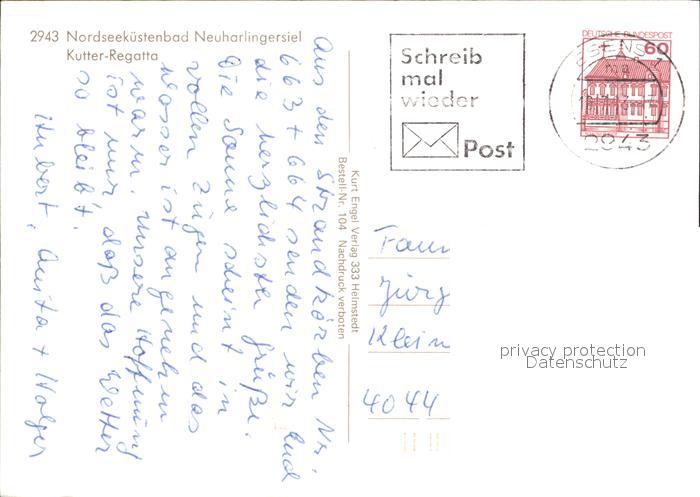 2943 Nordseeküstenbad Neuharlingersiel
Kutter-Regatta
Aus den Strandkörben Nr.
663 + 664 senden wir Euch
die herzlichsten Grüße.
Die Sonne scheint in
vollen Zügen und das
Wasser ist angenehm
warm. Unsere Hoffnung
ist nur, daß das Wetter
so bleibt.
Hubert, Anita + Holger
Kurt Engel Verlag 333 Helmstedt
Bestell-Nr. 104 Nachdruck verboten
Schreib
mal
wieder
Post
DEUTSCHE BUNDESPOST
60
2943
Fam
Jürg
Klein
4044
privacy protection
Datenschutz